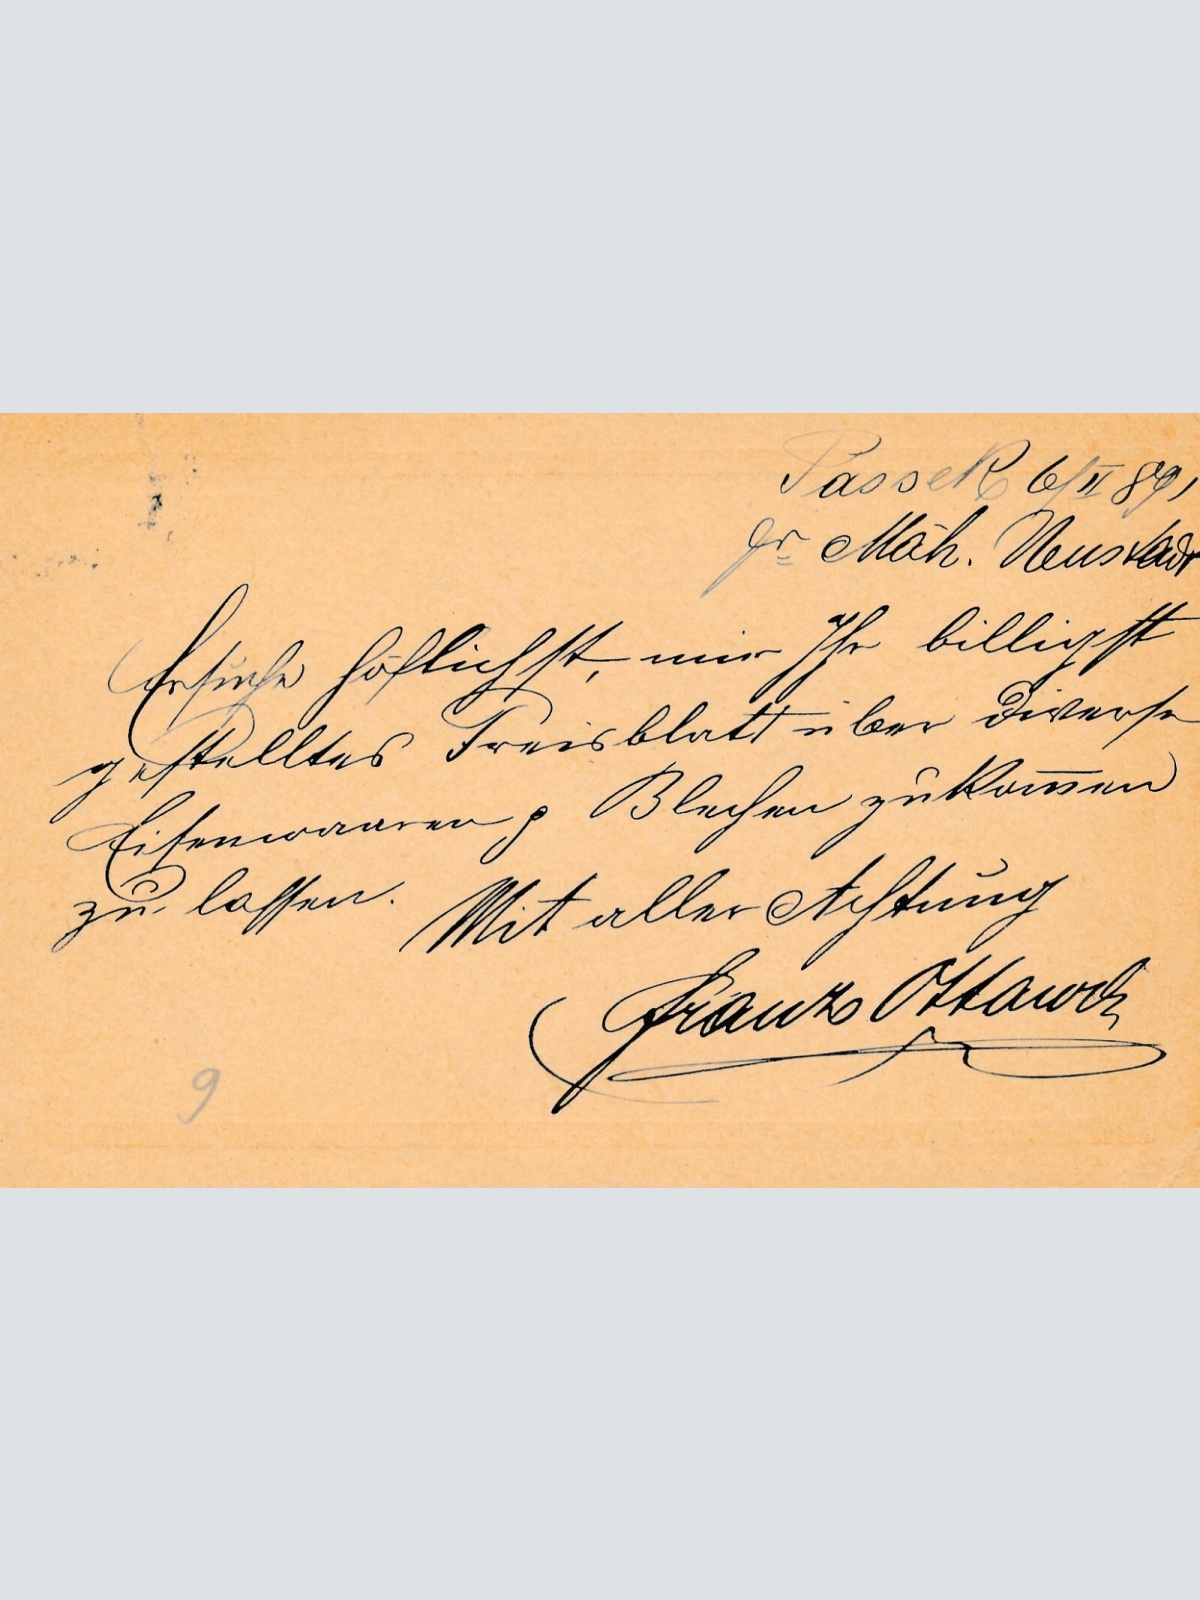 Passek 6/II 89,
pr Mäh. Neustadt
Ersuche höflichst, mir Ihr billigst
gestelltes Preisblatt über diverse
Eisenwaaren & Blechen zukom̅en
zu lassen. Mit aller Achtung
Franz Ottawa
9